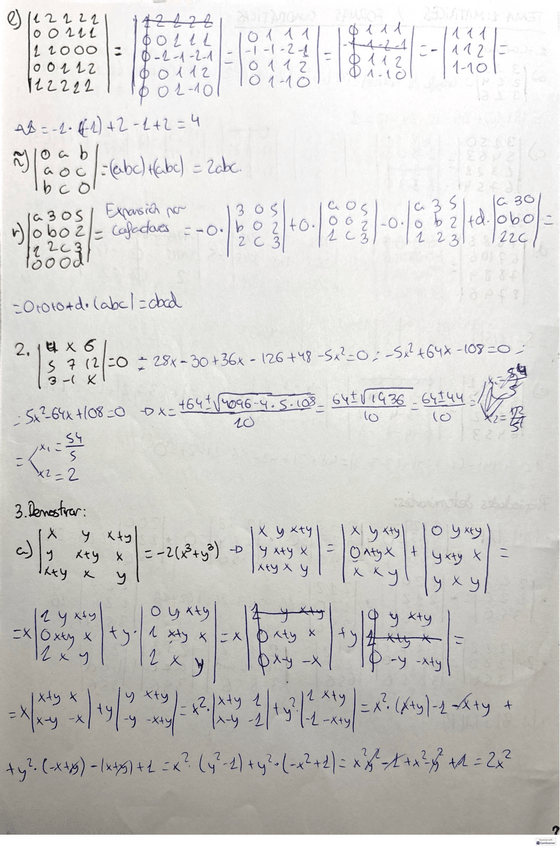 l) |1 2 1 2 1; 0 0 1 1 1; 1 1 0 0 0; 0 0 1 1 2; 1 2 2 1 1| = |1 2 1 2 1; 0 0 1 1 1; 0 -1 -1 -2 -1; 0 0 1 1 2; 0 0 1 -1 0| = |0 1 1 1; -1 -1 -2 -1; 0 1 1 2; 0 1 -1 0| = |0 1 1 1; -1 -1 -2 -1; 0 1 1 2; 0 1 -1 0| = -|1 1 1; 1 1 2; 1 -1 0| =
= -1 · (-1) + 2 - 1 + 2 = 4
ñ) |0 a b; a 0 c; b c 0| = (abc) + (abc) = 2abc.
r) |a 3 0 5; 0 b 0 2; 1 2 c 3; 0 0 0 d| = Expansión por cofactores = -0 · |3 0 5; b 0 2; 2 c 3| + 0 · |a 0 5; 0 0 2; 1 c 3| - 0 · |a 3 5; 0 b 2; 1 2 3| + d · |a 3 0; 0 b 0; 2 2 c| =
= 0+0+0+d · (abc) = abcd
2. |4 x 6; 5 7 12; 3 -1 x| = 0 = 28x - 30 + 36x - 126 + 48 - 5x² = 0; -5x² + 64x - 108 = 0;
= 5x² - 64x + 108 = 0 → x = +64 ± √4096 - 4 · 5 · 108 / 10 = 64 ± √1936 / 10 = 64 ± 44 / 10 =
= x1 = 54/5
x2 = 2
3. Demostrar:
a) |x y x+y; y x+y x; x+y x y| = -2(x³+y³) → |x y x+y; y x+y x; x+y x y| = |x y x+y; 0 x+y x; x x y| + |0 y x+y; y x+y x; y x y| =
= x |1 y x+y; 0 x+y x; 1 x y| + y · |0 y x+y; 1 x+y x; 1 x y| = x |1 y x+y; 0 x+y x; 0 x-y -x| + y |0 y x+y; 1 x+y x; 0 -y -x+y| =
= x |x+y x; x-y -x| + y |y x+y; -y -x+y| = x² · |x+y 1; x-y -1| + y² · |1 x+y; -1 -x+y| = x² · (x+y) - 1 - x + y +
+ y² · (-x+y) - (x+y) + 1 = x² · (y² - 1) + y² · (-x² + 1) = x²y² - 1 + x² - y² + 1 = 2x²